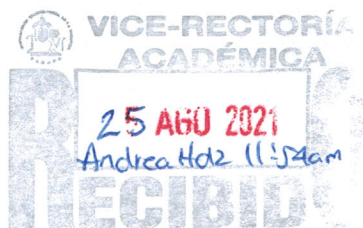 VICE-RECTORÍA
ACADÉMICA
25 AGO 2021
Andrea Holz 11:54am
RECIBIDO